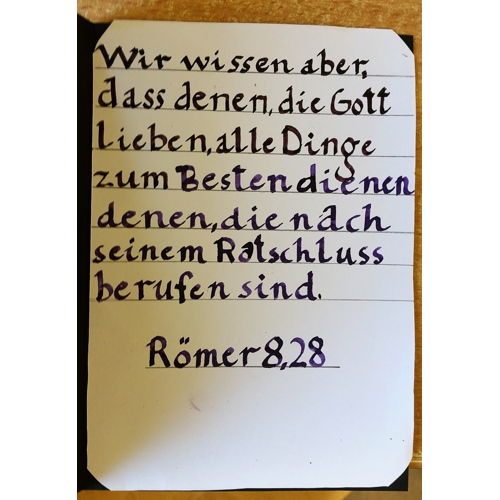 Wir wissen aber,
dass denen, die Gott
Lieben, alle Dinge
zum Besten dienen
denen, die nach
seinem Ratschluss
berufen sind.
Römer 8,28